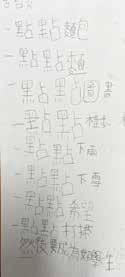 一點點麵包
一點點麵
一點點圖書
一點點
一點點下雨
一點點下雪
一點點希望
一點點打掃
然後要成為好學生